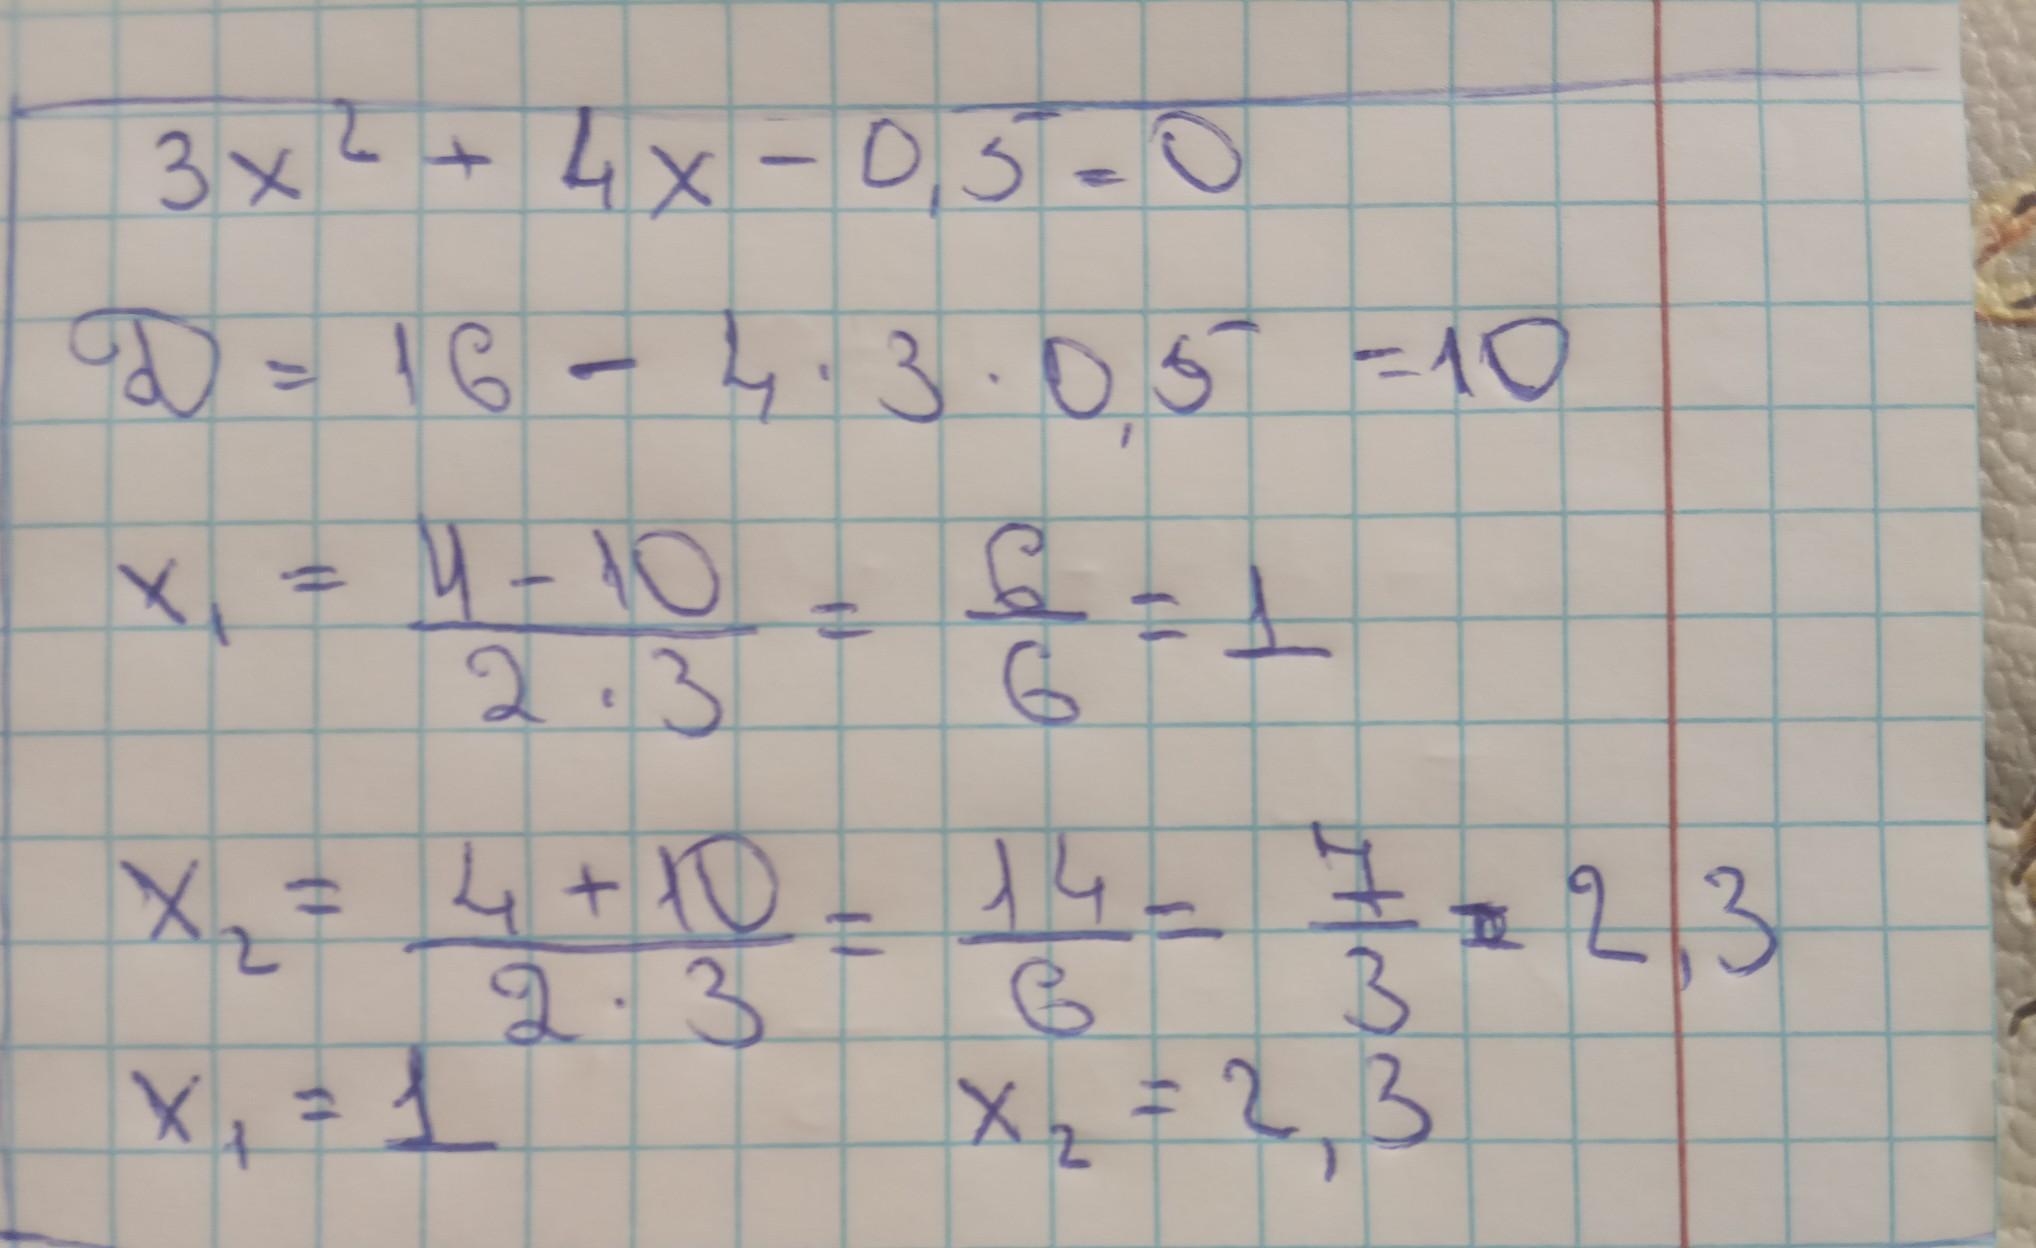 3x² + 4x - 0,5 = 0
D = 16 - 4 · 3 · 0,5 = 10
x₁ = (4 - 10)/(2 · 3) = 6/6 = 1
x₂ = (4 + 10)/(2 · 3) = 14/6 = 7/3 = 2,3
x₁ = 1 x₂ = 2,3